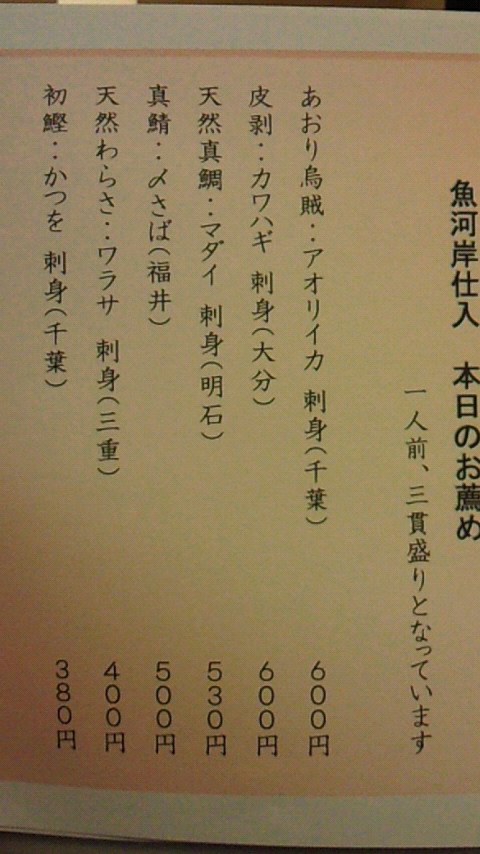 魚河岸仕入　本日のお薦め
一人前、三貫盛りとなっています
あおり烏賊：アオリイカ　刺身（千葉）　６００円
皮剥：カワハギ　刺身（大分）　６００円
天然真鯛：マダイ　刺身（明石）　５３０円
真鯖：〆さば（福井）　５００円
天然わらさ：ワラサ　刺身（三重）　４００円
初鰹：かつを　刺身（千葉）　３８０円